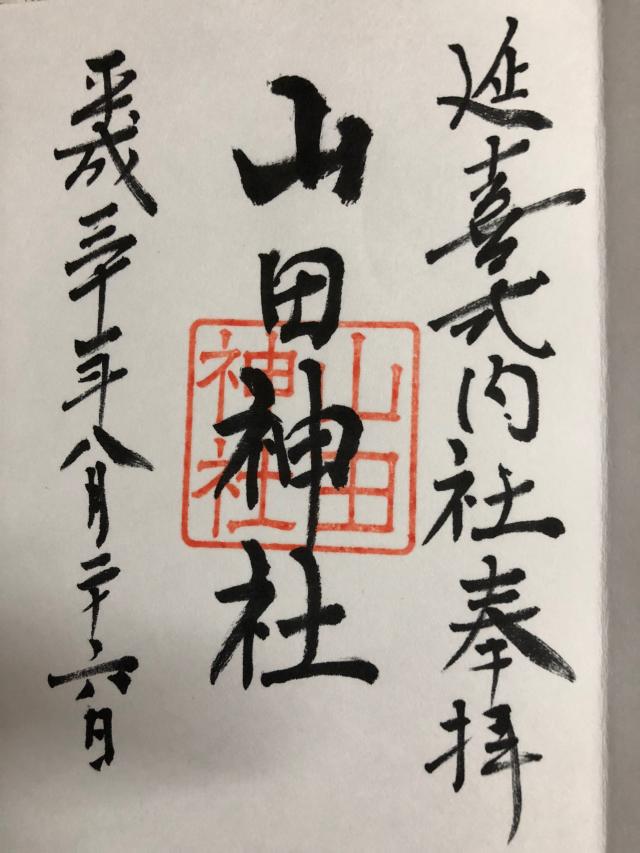 延喜式内社奉拝
山田神社
山田神社
平成三十年八月二十六日